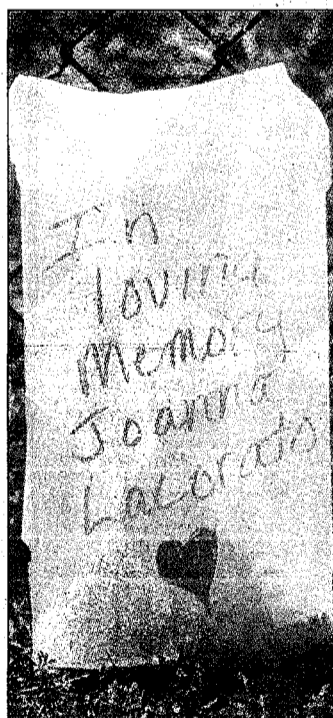 In
loving
Memory
Joanna
LaCorats